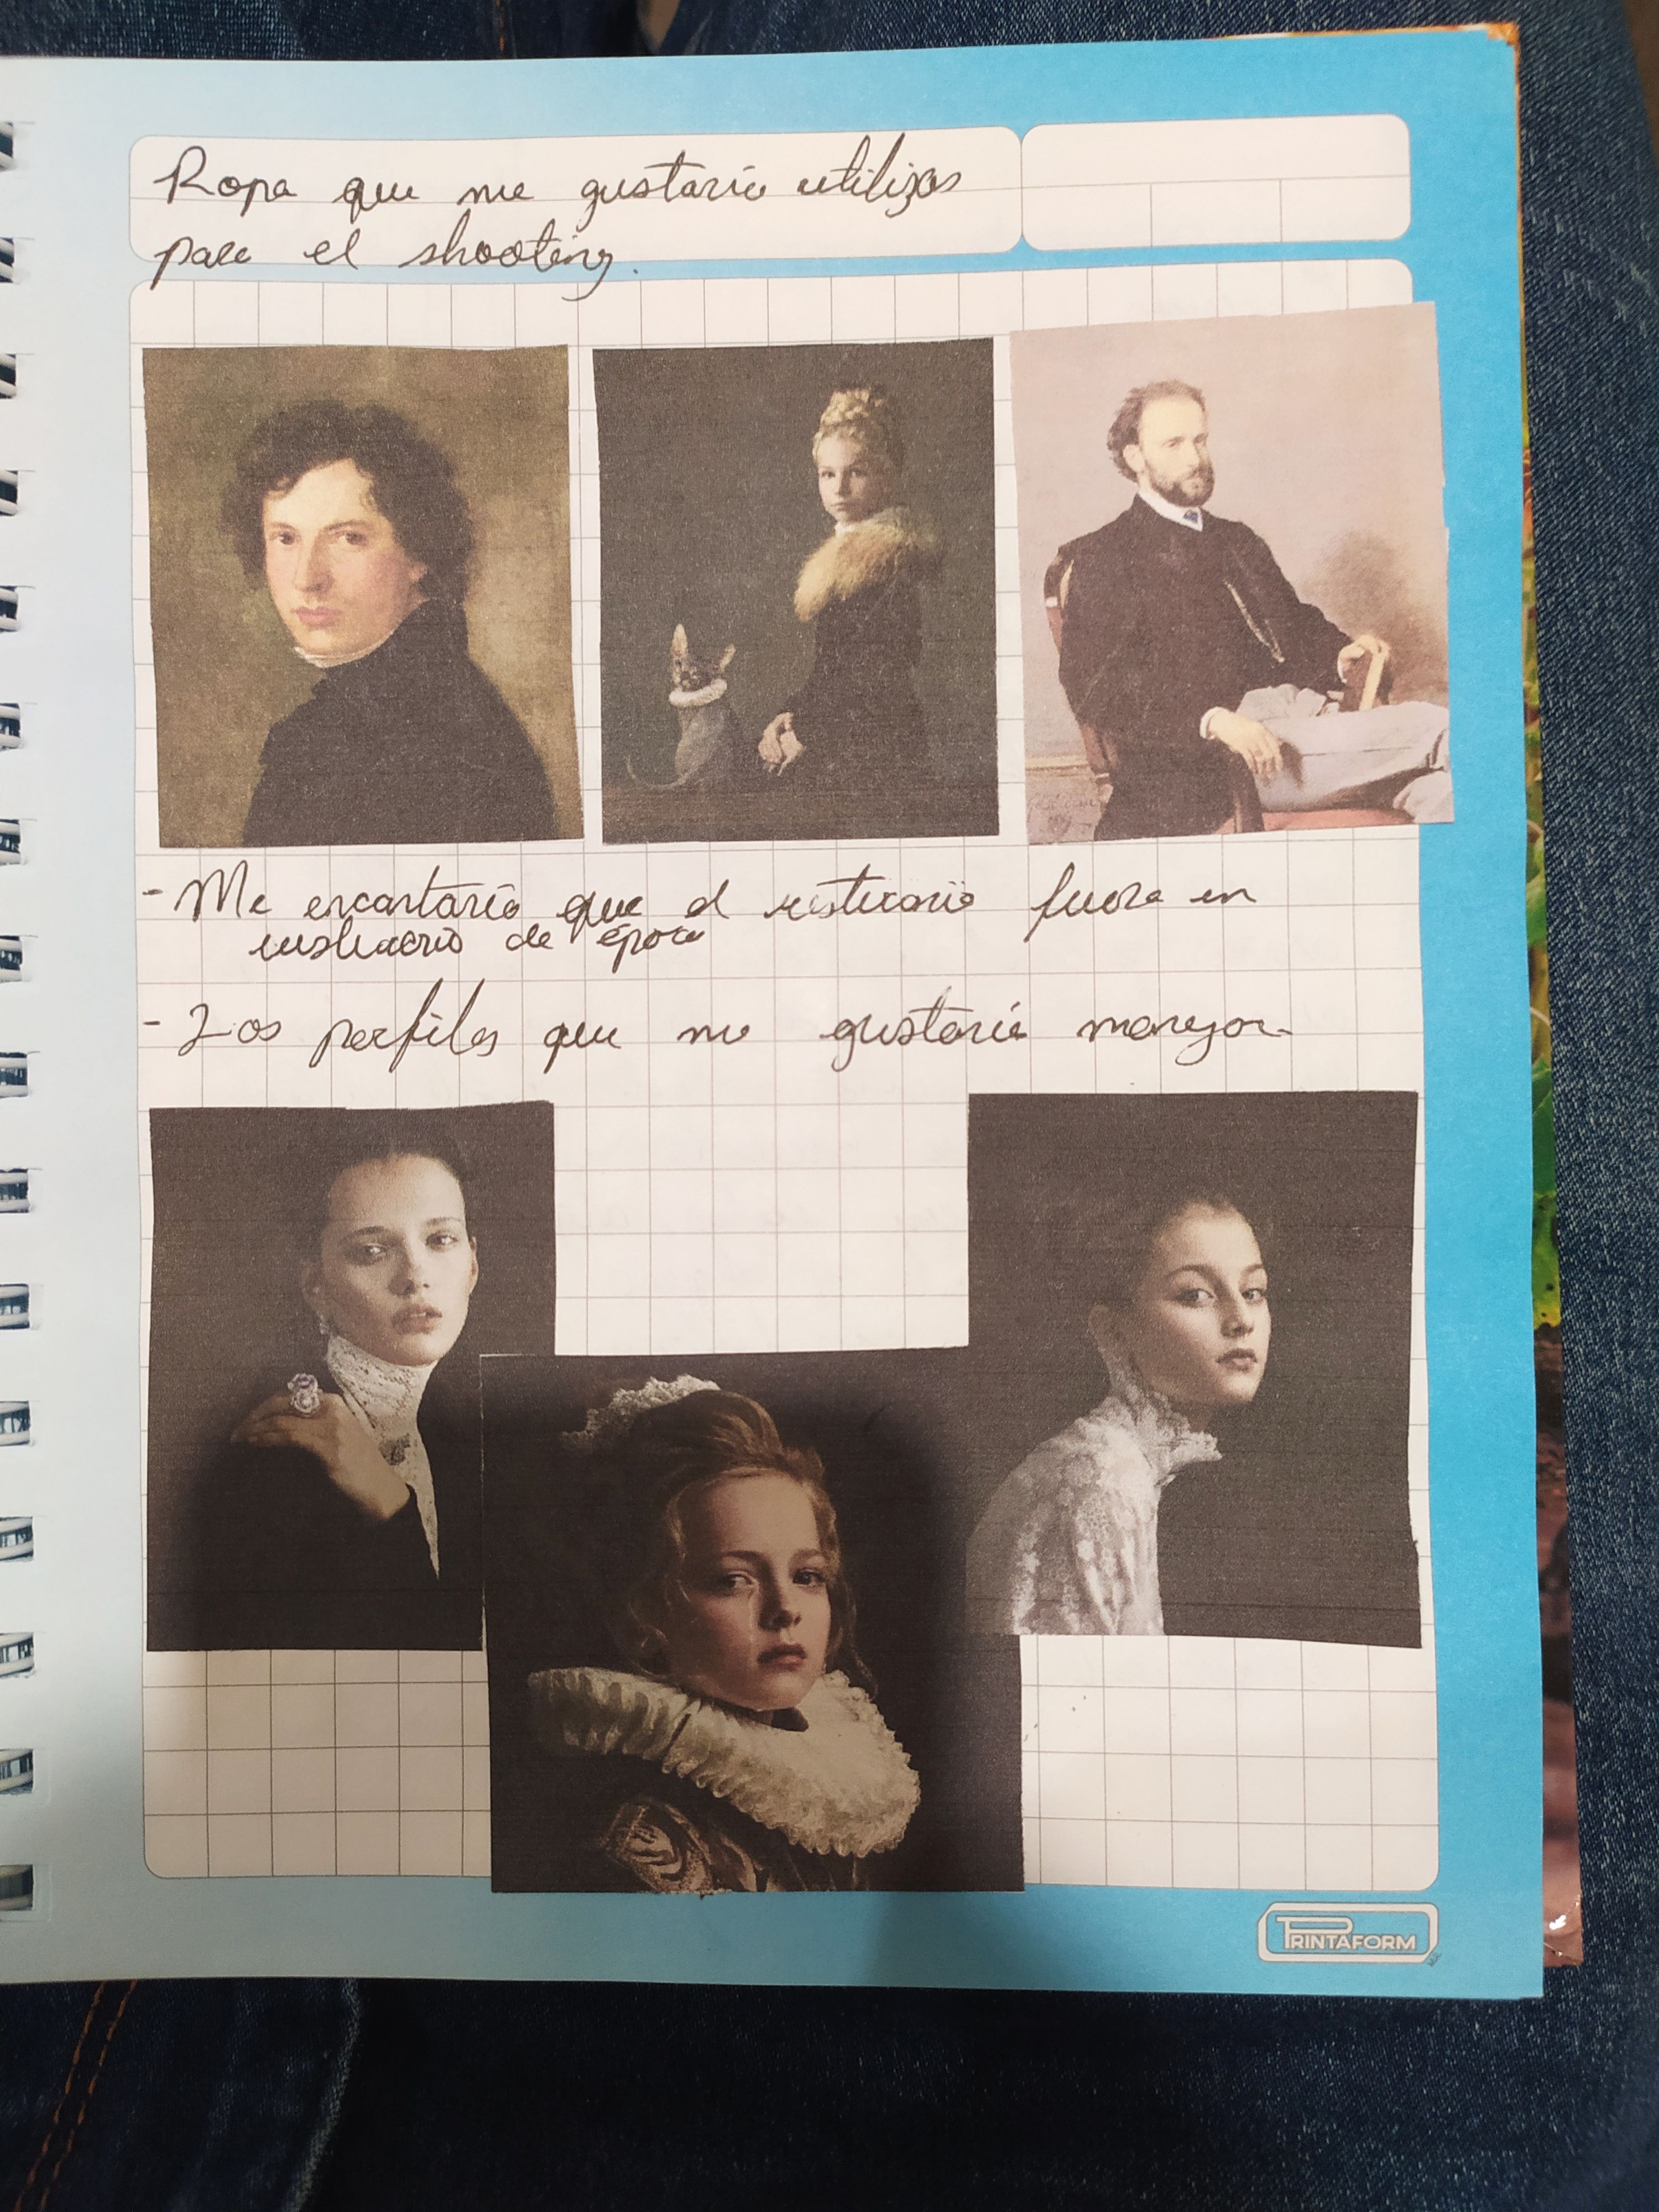 Ropa que me gustaría utilizar
para el shooting.
- Me encantaría que el vestuario fuera en
vestuario de época
- Los perfiles que me gustaría manejar
PRINTAFORM